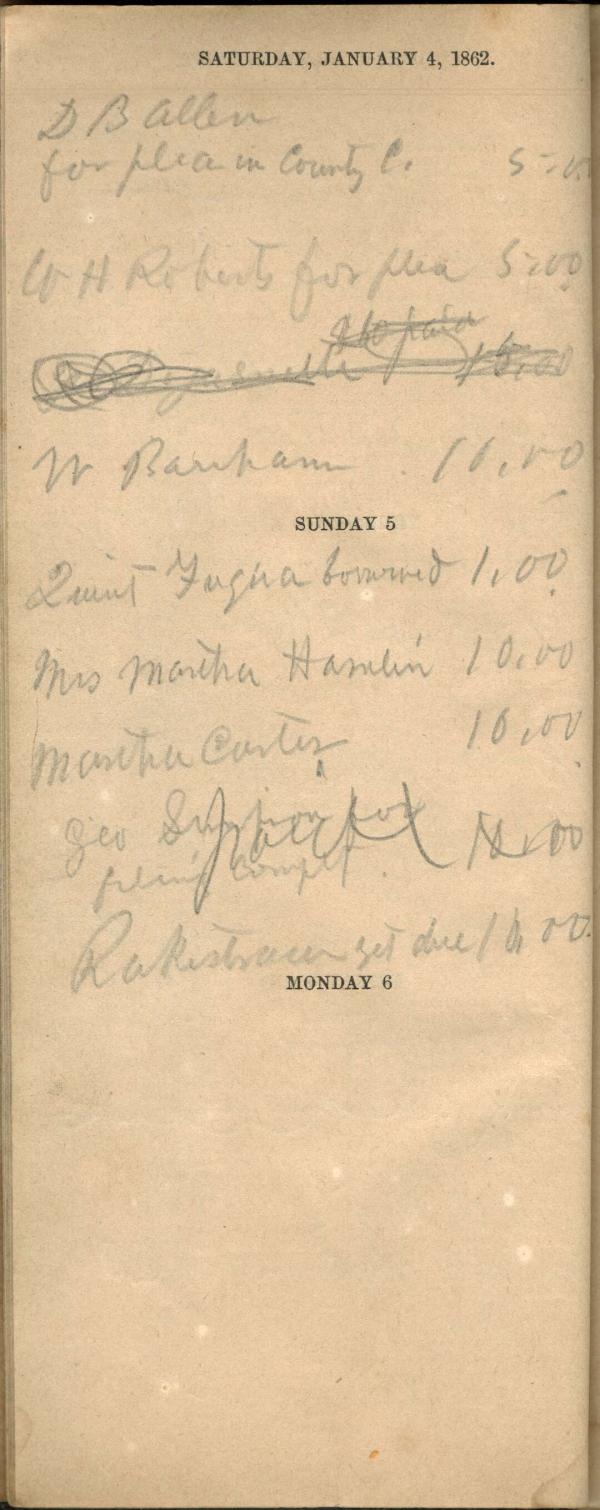 SATURDAY, JANUARY 4, 1862.
D B Allen
for plea in County C. 5-00
W H Roberts for plea 5.00
paid
15.00
W Barham 10.00
SUNDAY 5
Quint Fuqua borrowed 1.00
Mrs Martha Hamlin 10.00
Martha Carter 10.00
Geo Simpson for
filing Compl
Rakestraw yet due
MONDAY 6